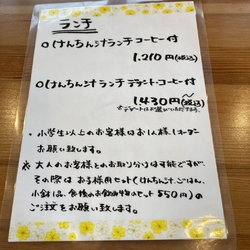 ランチ
○ けんちん汁ランチ コーヒー付
1.210円(税込)
○ けんちん汁ランチ デザート・コーヒー付
1.430円〜(税込)
※デザートはお選びいただけます。
・小学生以上のお客様はお1人様1オーダー
お願い致します。
※ 大人のお客様とのお取り分けは可能ですが、
その際は お子様用セット(けんちん汁、ごはん、
小鉢1品、食後のお飲み物のセット 550円)の
ご注文をお願い致します。